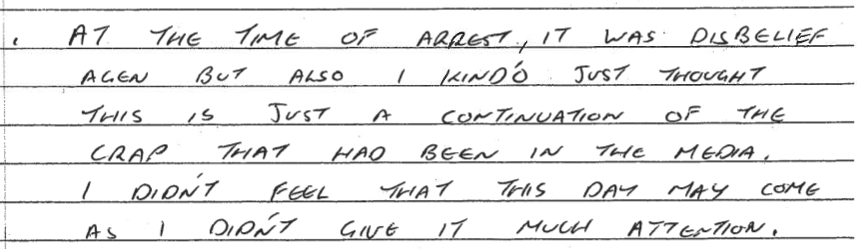 . AT THE TIME OF ARREST, IT WAS DISBELIEF
AGEN BUT ALSO I KINDÓ JUST THOUGHT
THIS IS JUST A CONTINUATION OF THE
CRAP THAT HAD BEEN IN THE MEDIA.
I DIDN'T FEEL THAT THIS DAY MAY COME
AS I DIDN'T GIVE IT MUCH ATTENTION.